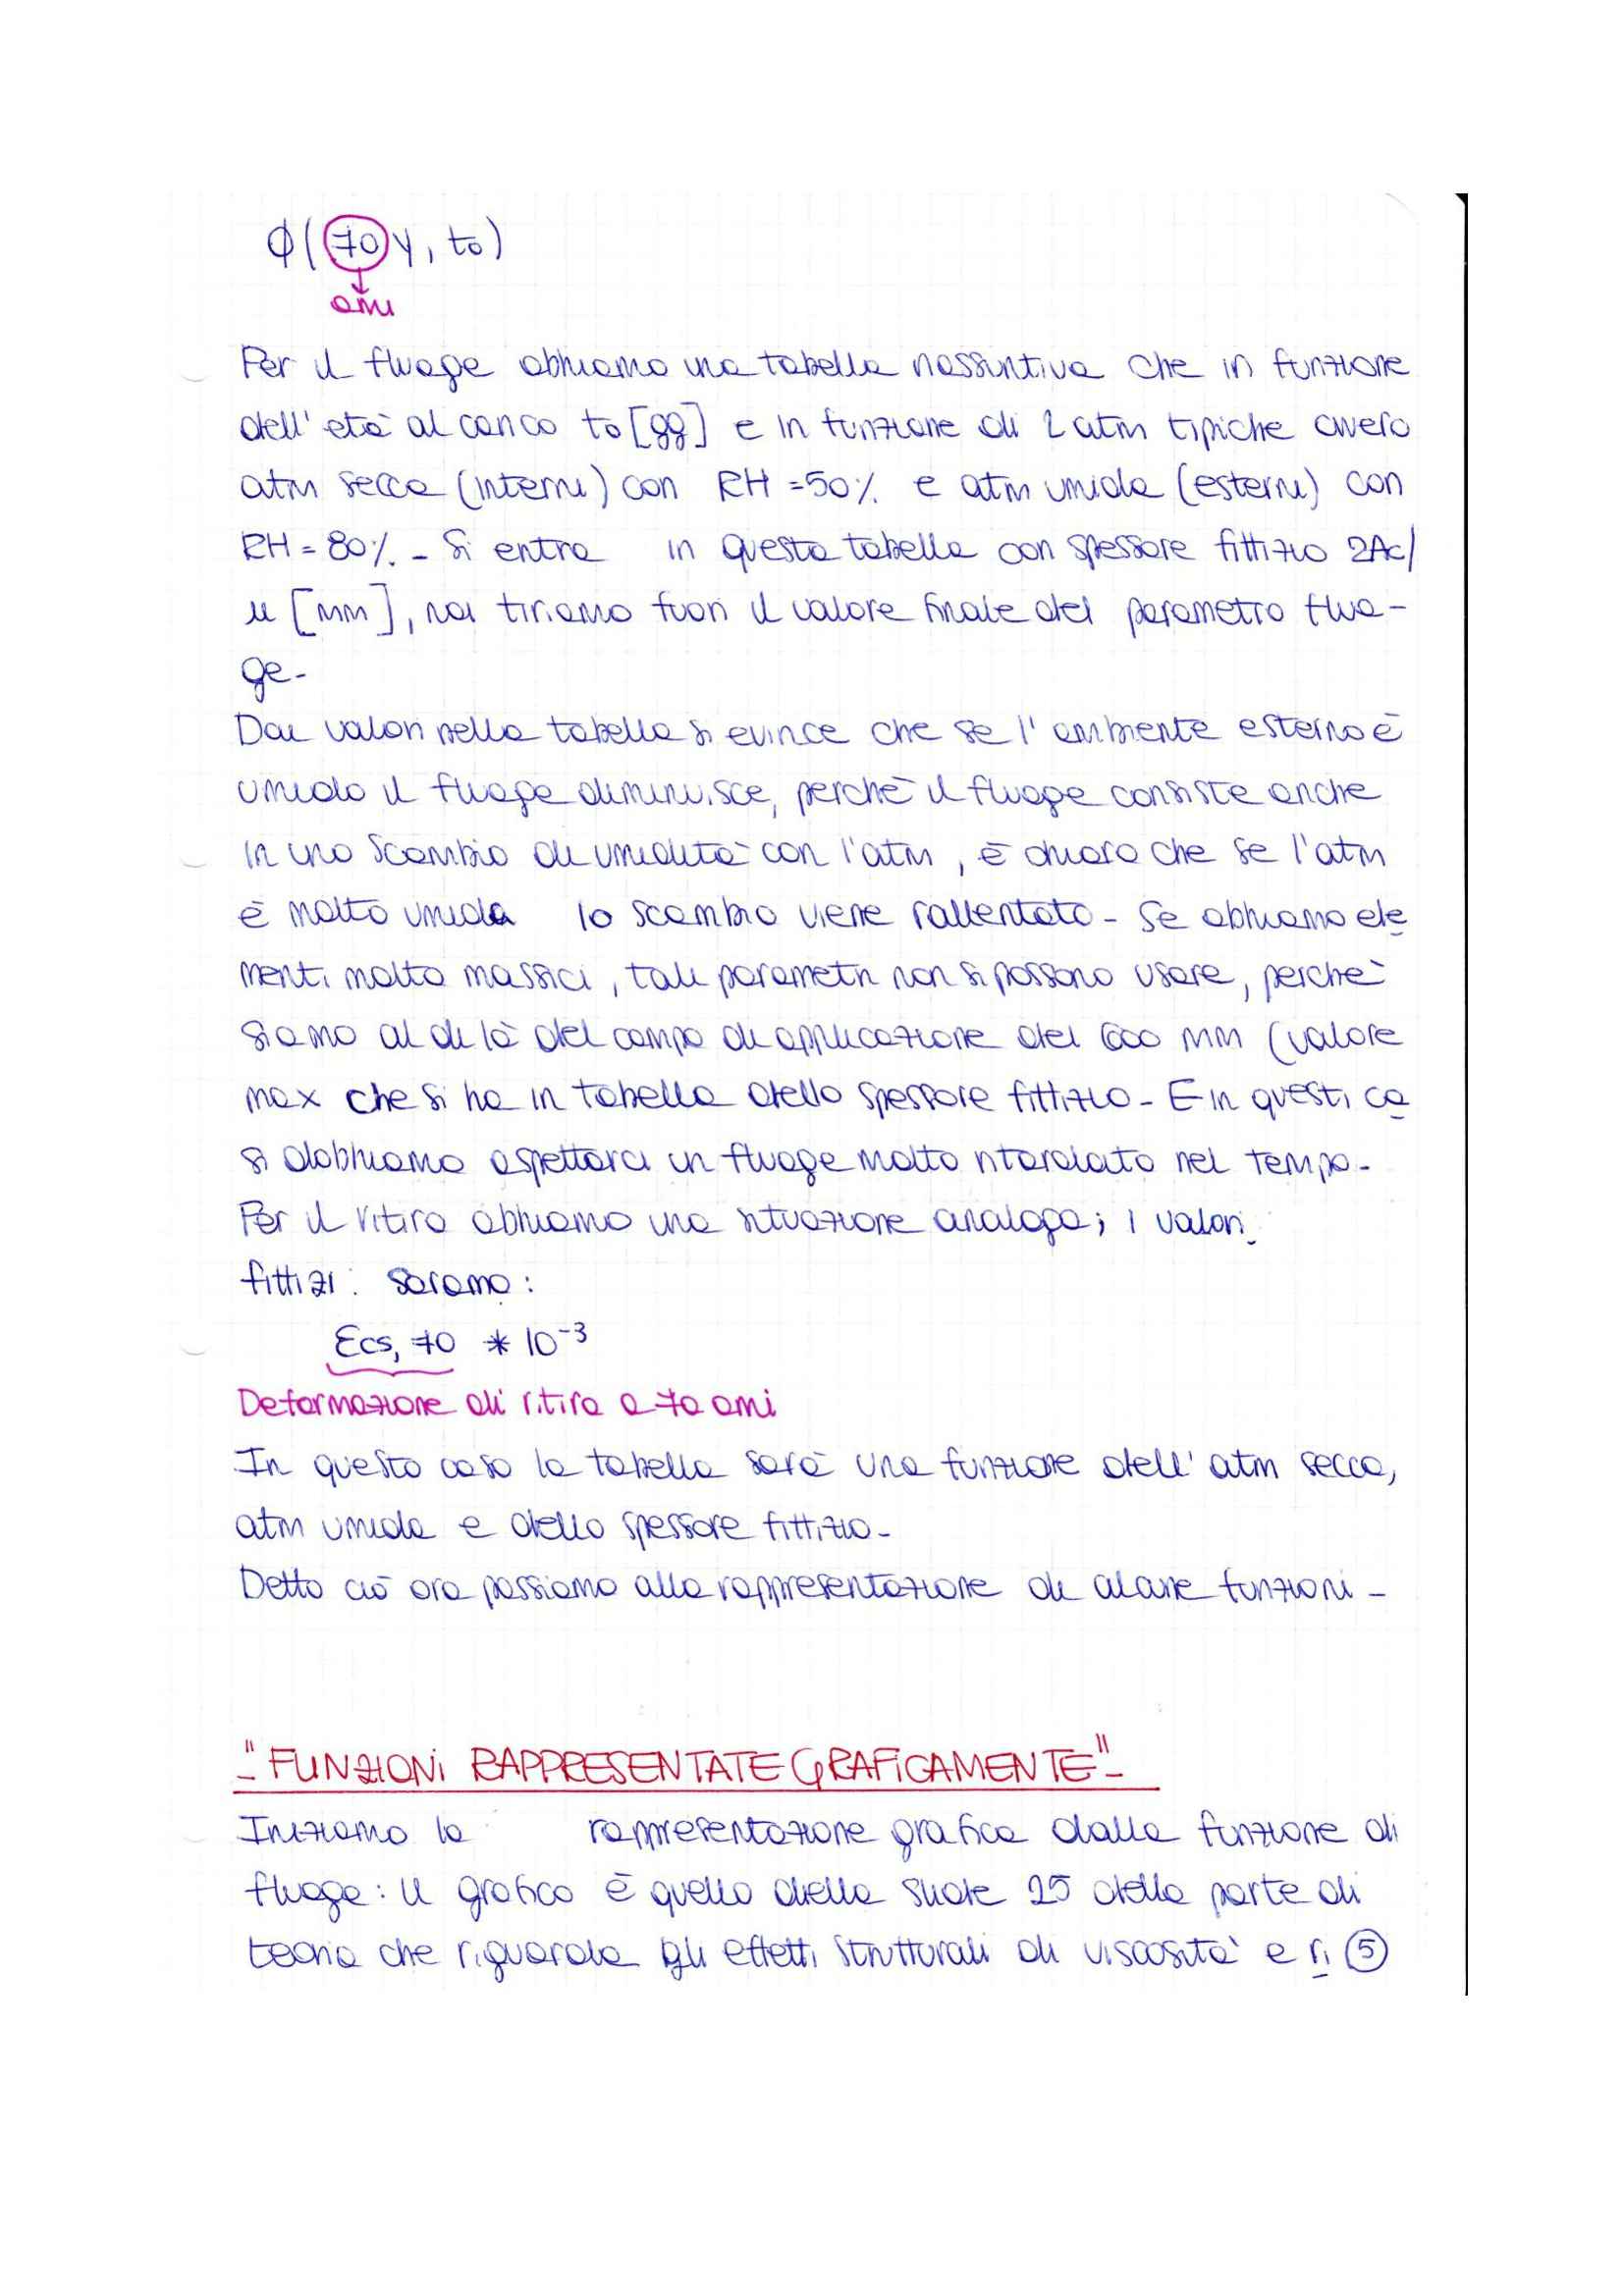 ϕ(70y, to)
anni
Per il fluage abbiamo una tabella riassuntiva che in funzione
dell'età al carico to [gg] e in funzione di 2 atm tipiche ovvero
atm secca (interni) con RH =50% e atm umida (esterni) con
RH = 80%. - Si entra in questa tabella con spessore fittizio 2Ac/
u [mm], noi tiriamo fuori il valore finale del parametro flua-
ge-
Dai valori nella tabella si evince che se l'ambiente esterno è
umido il fluage diminuisce, perchè il fluage consiste anche
in uno scambio di umidità con l'atm, è chiaro che se l'atm
è molto umida lo scambio viene rallentato - Se abbiamo ele
menti molto massicci, tali parametri non si possono usare, perchè
siamo al di là del campo di applicazione dei 600 mm (valore
max che si ha in tabella dello spessore fittizio - E in questi ca
si dobbiamo aspettarci un fluage molto ritardato nel tempo-
Per il ritiro abbiamo una situazione analoga; i valori
fittizi: saranno:
Ɛcs, 70 * 10⁻³
Deformazione di ritiro a 70 anni
In questo caso la tabella sarà una funzione dell'atm secca,
atm umida e dello spessore fittizio-
Detto ciò ora passiamo alla rappresentazione di alcune funzioni -
-"FUNZIONI RAPPRESENTATE GRAFICAMENTE"-
Iniziamo la rappresentazione grafica dalla funzione di
fluage: il grafico è quello della slide 25 della parte di
teoria che riguarda gli effetti strutturali di viscosità e ri 5